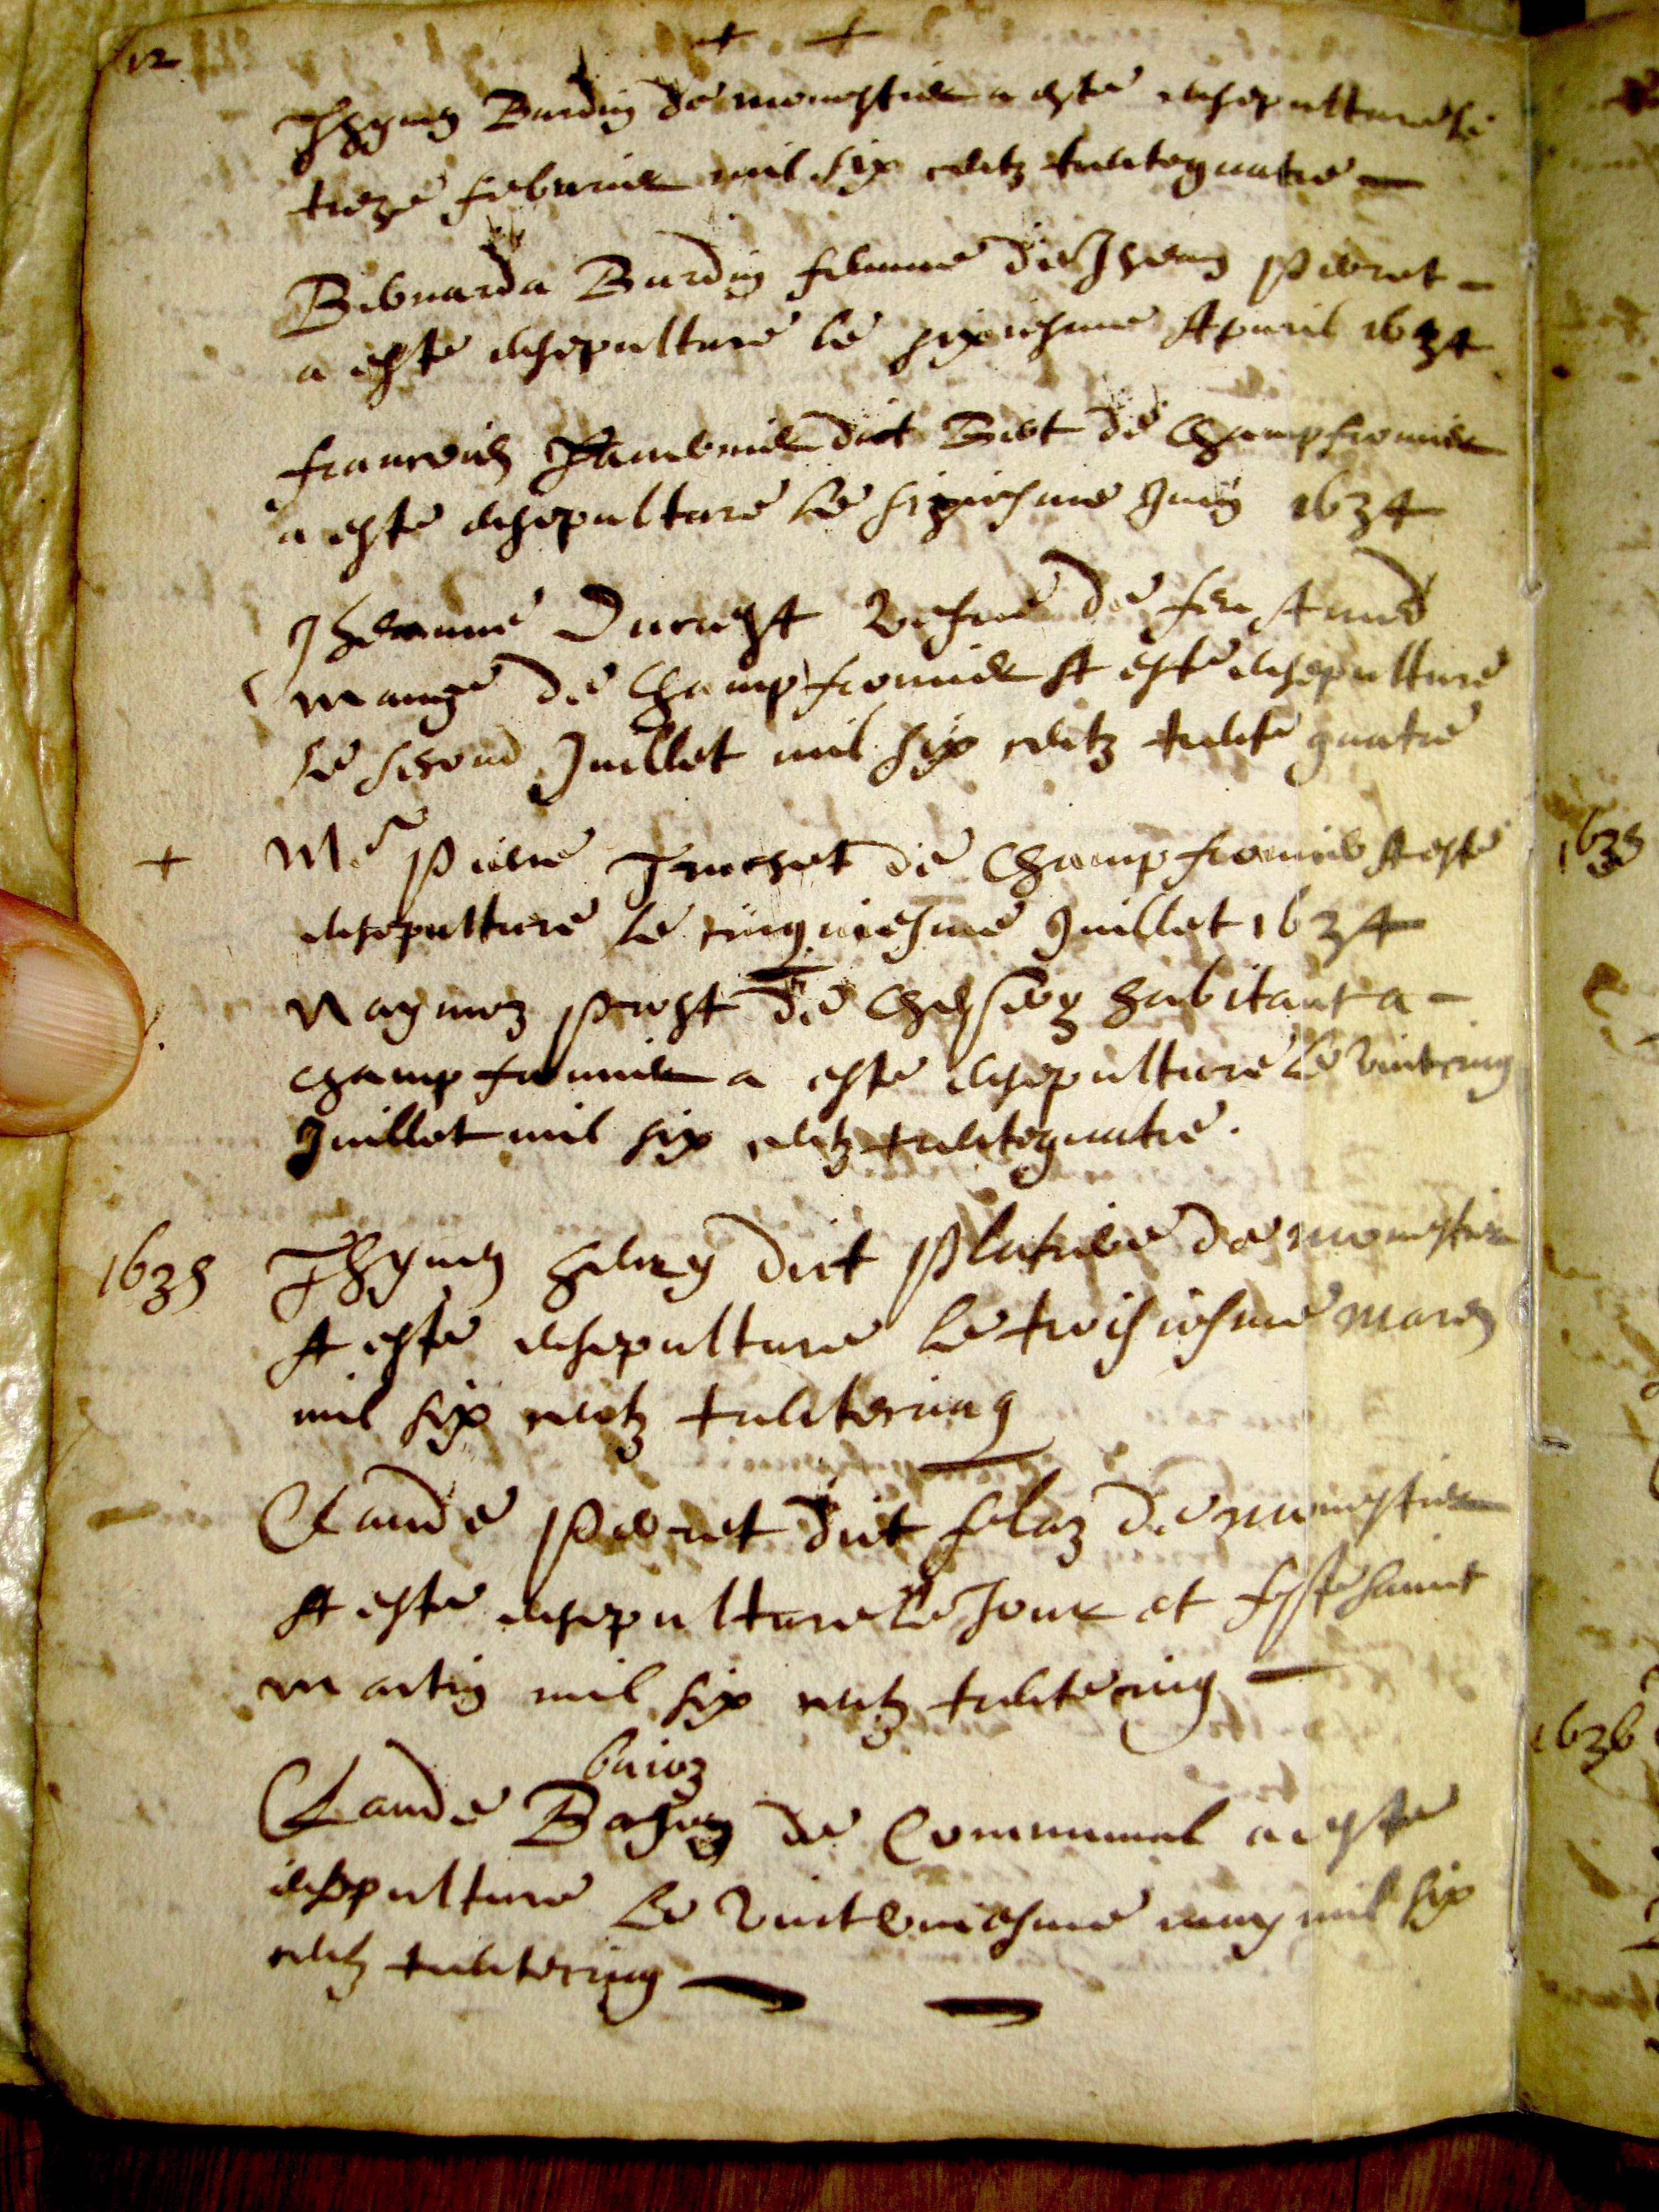 12
Thyven Burdin de monestier a este ensepulture le
treze febvrier mil six centz trentequatre
Bernarda Burdin femme de Jhean Perret
a este ensepulture le sixiesme Apvril 1634
francois Tavernier dict Biot de Champfromier
a este ensepulture le sixiesme Juin 1634
Jheanne Ducrest vefve de feu And
mange de Champfromier A este ensepulture
le second Juillet mil six centz trente quatre
+ Me Pierre Truchet de Champfromier A este
ensepulture le cinquiesme Juillet 1634
Raymoz Prost de habitant a
champfromier a este ensepulture le vintcinq
Juillet mil six centz trentequatre.
1635 Thyven dict de monestier
A este ensepulture le troisiesme mars
mil six centz trentecinq
Claude Perret dict de monestier
A este ensepulture le Jour et feste sainct
martin mil six centz trentecinq
Claude buioz de Communal a este
ensepulture le may mil six
centz trentecinq
1635
1636